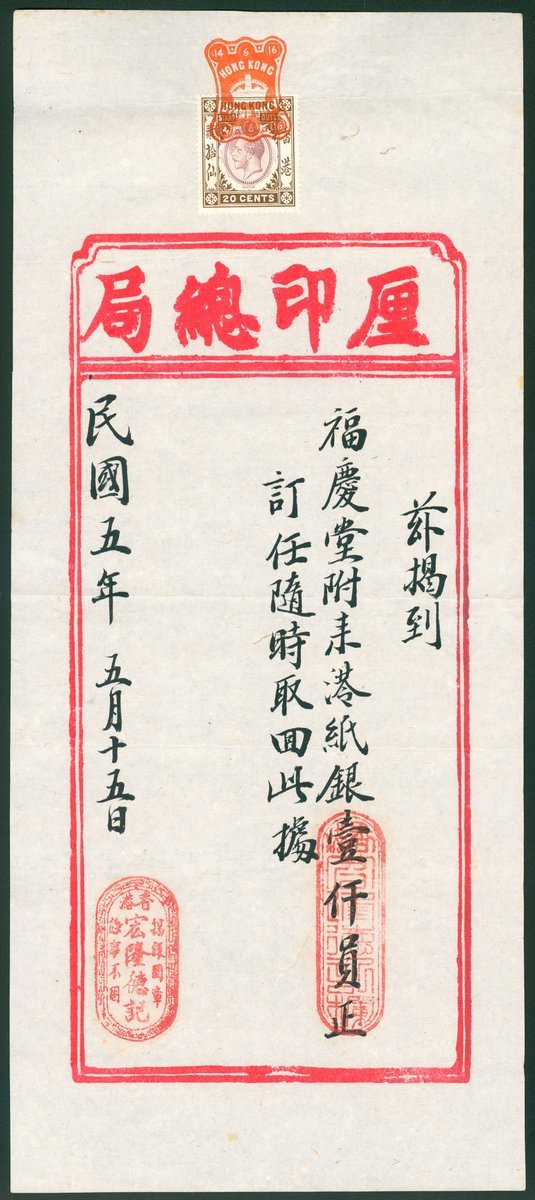 14 6 16
HONG KONG
HONG KONG
香港
貳拾仙
20 CENTS
厘印總局
茲揭到
福慶堂附來港紙銀壹仟員正
訂任隨時取回此據
民國五年 五月十五日
香港
宏隆德記
揭銀圖章